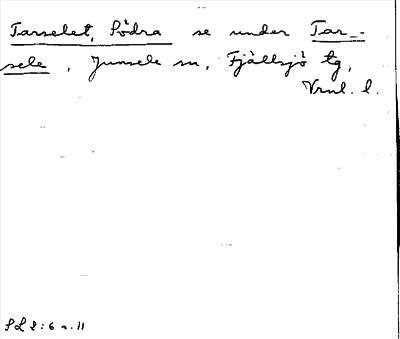 Tarselet, Södra se under Tar-
sele, Junsele sn, Fjällsjö tg,
Vrnl. l.
SL 2:6 s. 11